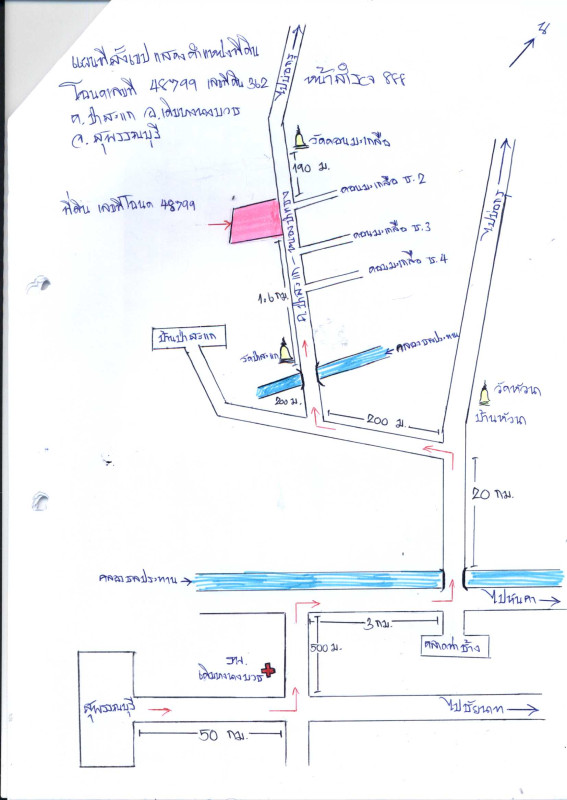 แผนที่สังเขป แสดงตำแหน่งที่ดิน
โฉนดเลขที่ 48799 เลขที่ดิน 362 หน้าสำรวจ 888
ต. ป่าสะแก อ.เดิมบางนางบวช
จ. สุพรรณบุรี
น
วัดดอนมะเกลือ
190 ม.
ดอนมะเกลือ ซ.2
ที่ดิน เลขที่โฉนด 48799
ดอนมะเกลือ ซ.3
ดอนมะเกลือ ซ.4
1.6 กม.
บ้านป่าสะแก
วัดป่าสะแก
คลองชลประทาน
200 ม.
200 ม.
วัดหัวนา
บ้านหัวนา
20 กม.
คลองชลประทาน
ไปหันคา
3 กม.
ตลาดท่าช้าง
500 ม.
รพ.
เดิมบางนางบวช
สุพรรณบุรี
ไปชัยนาท
50 กม.